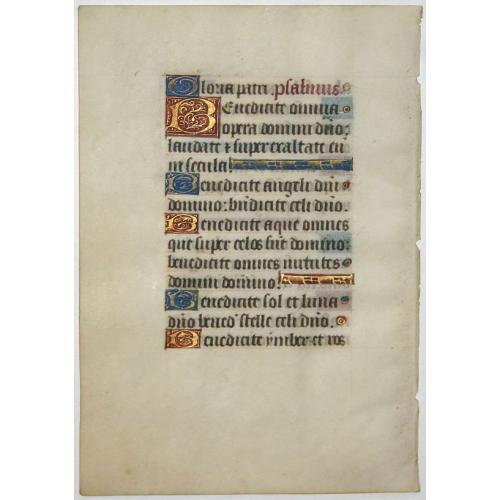 Gloria patri. psalmus.
Benedicite omnia
opera domini dño:
laudate & super exaltate eū
in secula.
Benedicite angeli dñi
domino: bñdicite celi dño.
Benedicite aque omnes
que super celos sūt domino:
benedicite omnes virtutes
domini domino.
Benedicite sol et luna
dño bened' stelle celi dño.
Benedicite ymber et ros